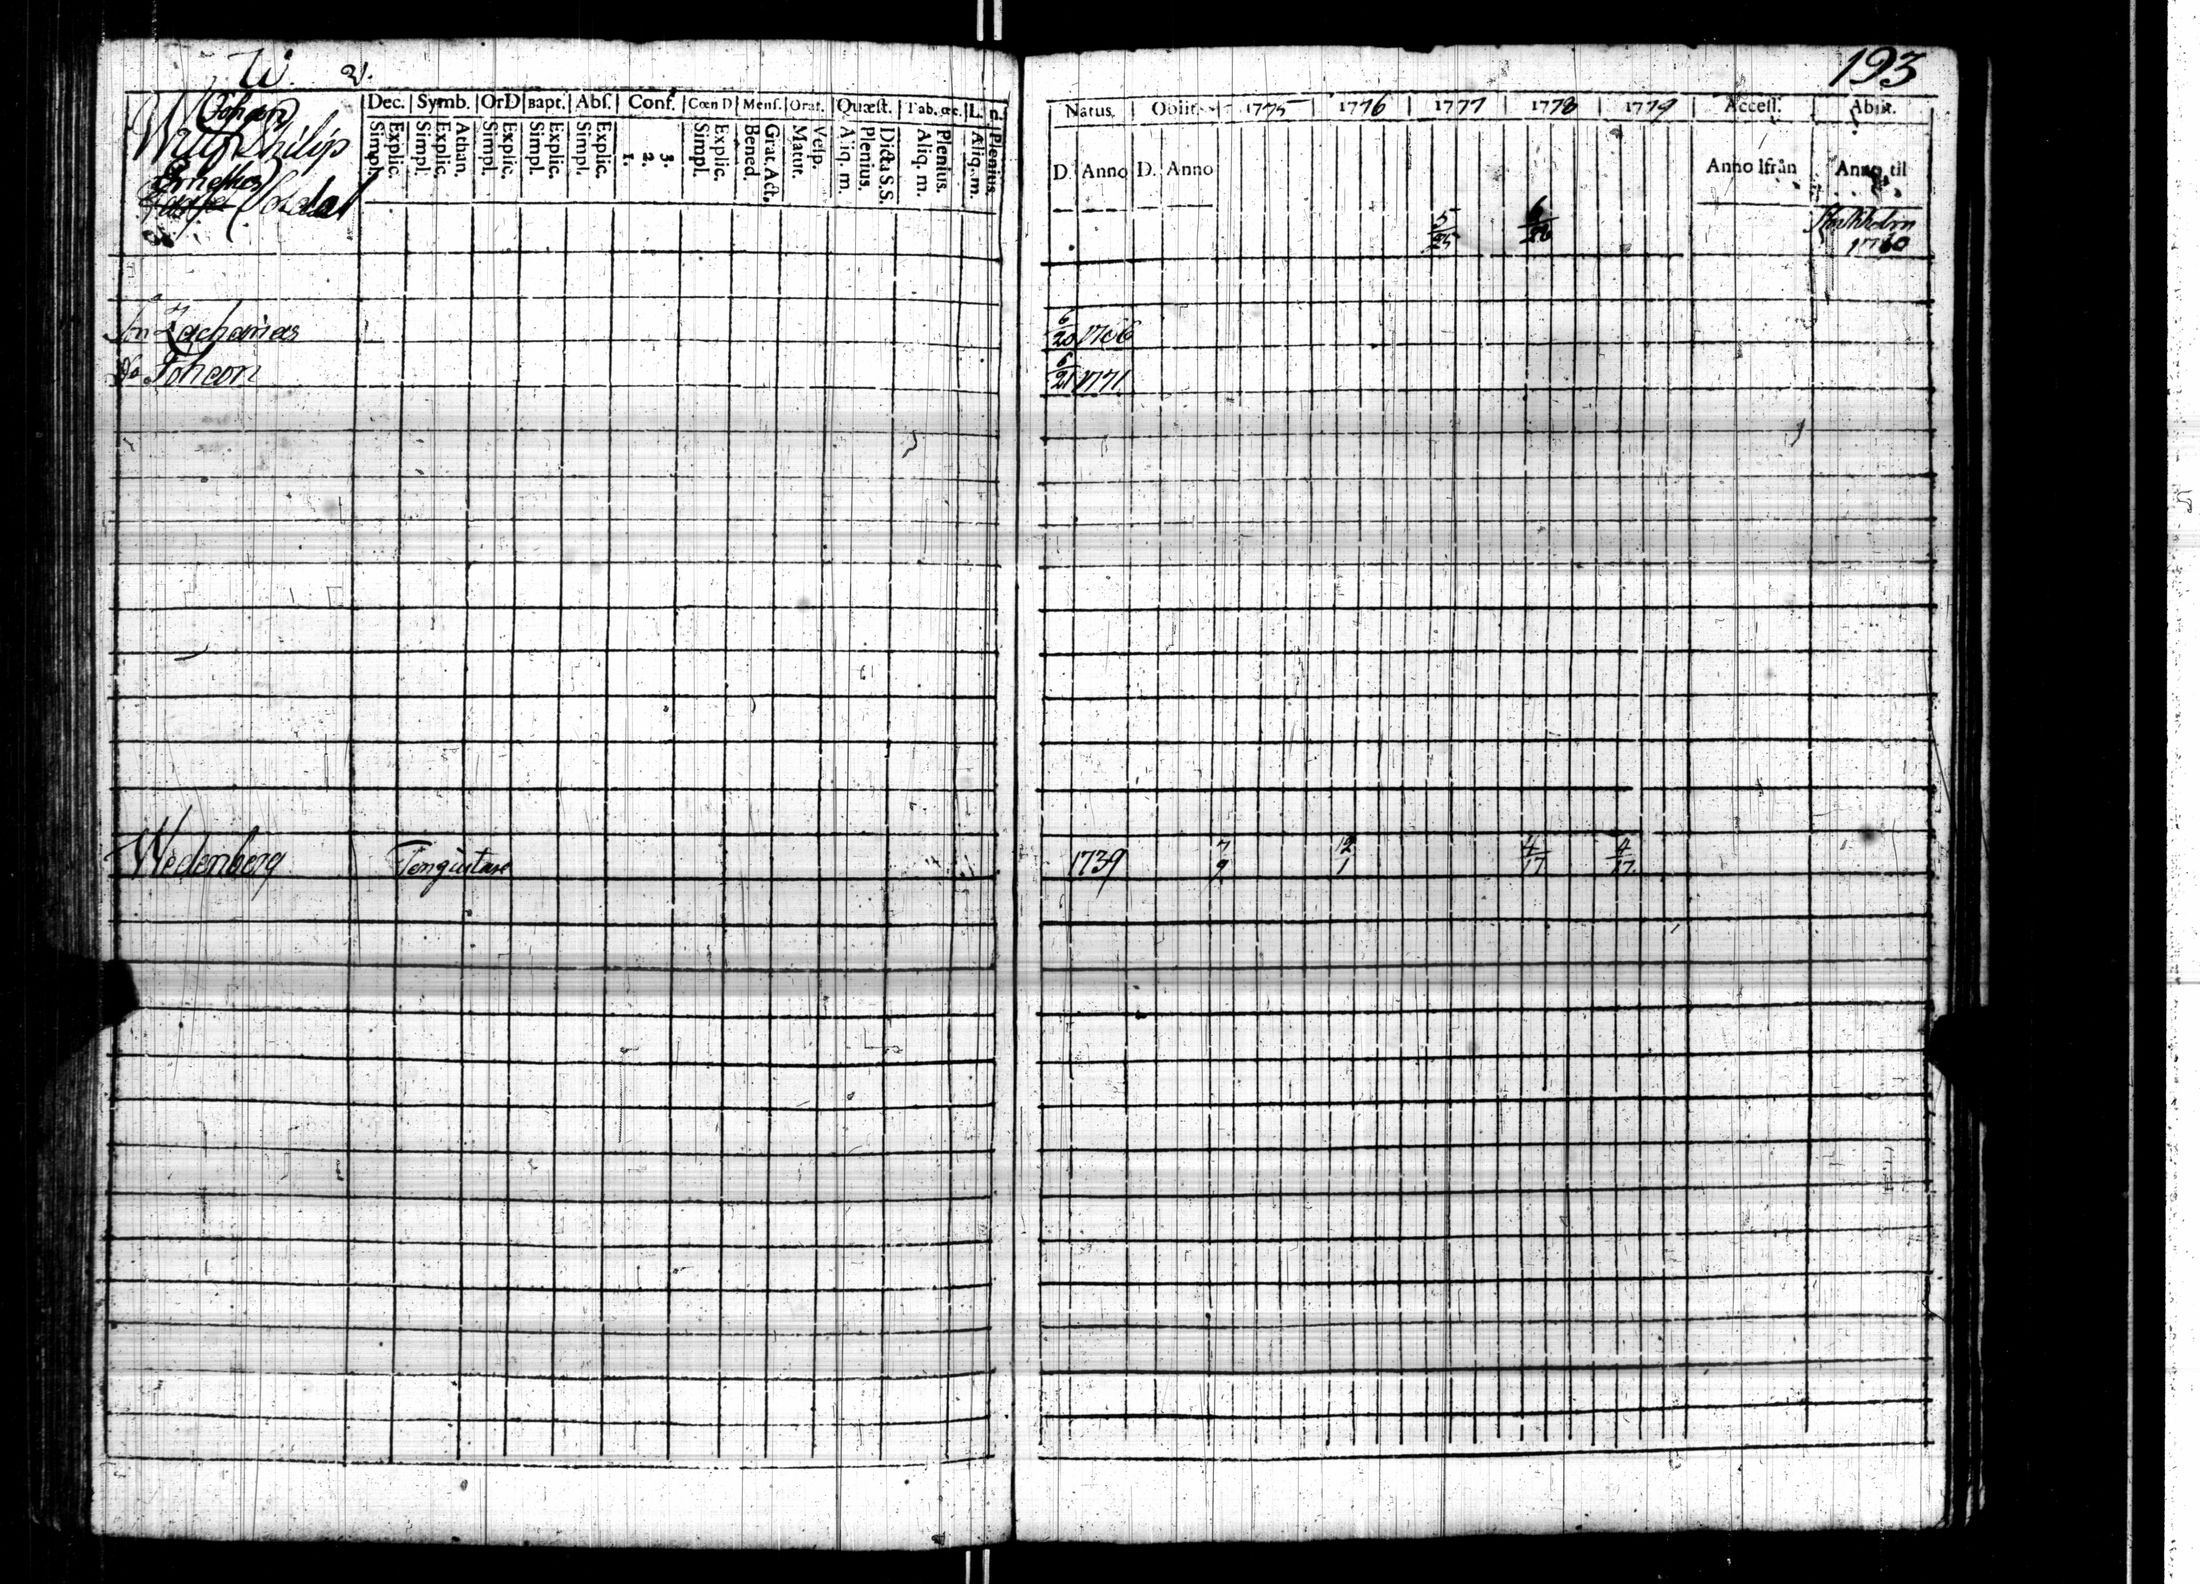 W. 2.
193
Dec. Symb. OrD Bapt. Abſ. Conf. Cœn D Menſ. Orat. Quæſt. Tab. œc. L. n.
Simpl. Explic. Simpl. Explic. Athan. Simpl. Explic. Simpl. Explic. Simpl. Explic. 1. 2. 3. Simpl. Explic. Bened. Grat. Act. Matut. Veſp. Aliq. m. Plenius. Dicta S.S. Aliq. m. Plenius. Aliq. m. Plenius.
Natus. Obiit. 1775 1776 1777 1778 1779 Acceſſ. Abiit.
D. Anno D. Anno Anno ifrån Anno til
Johan
Philip
5/25 6/26 Stockholm
1780
Son Zacharias 6/20
Do Johan 6/21 1771
Wedenberg 1739 7/9 12/1 4/17 4/17